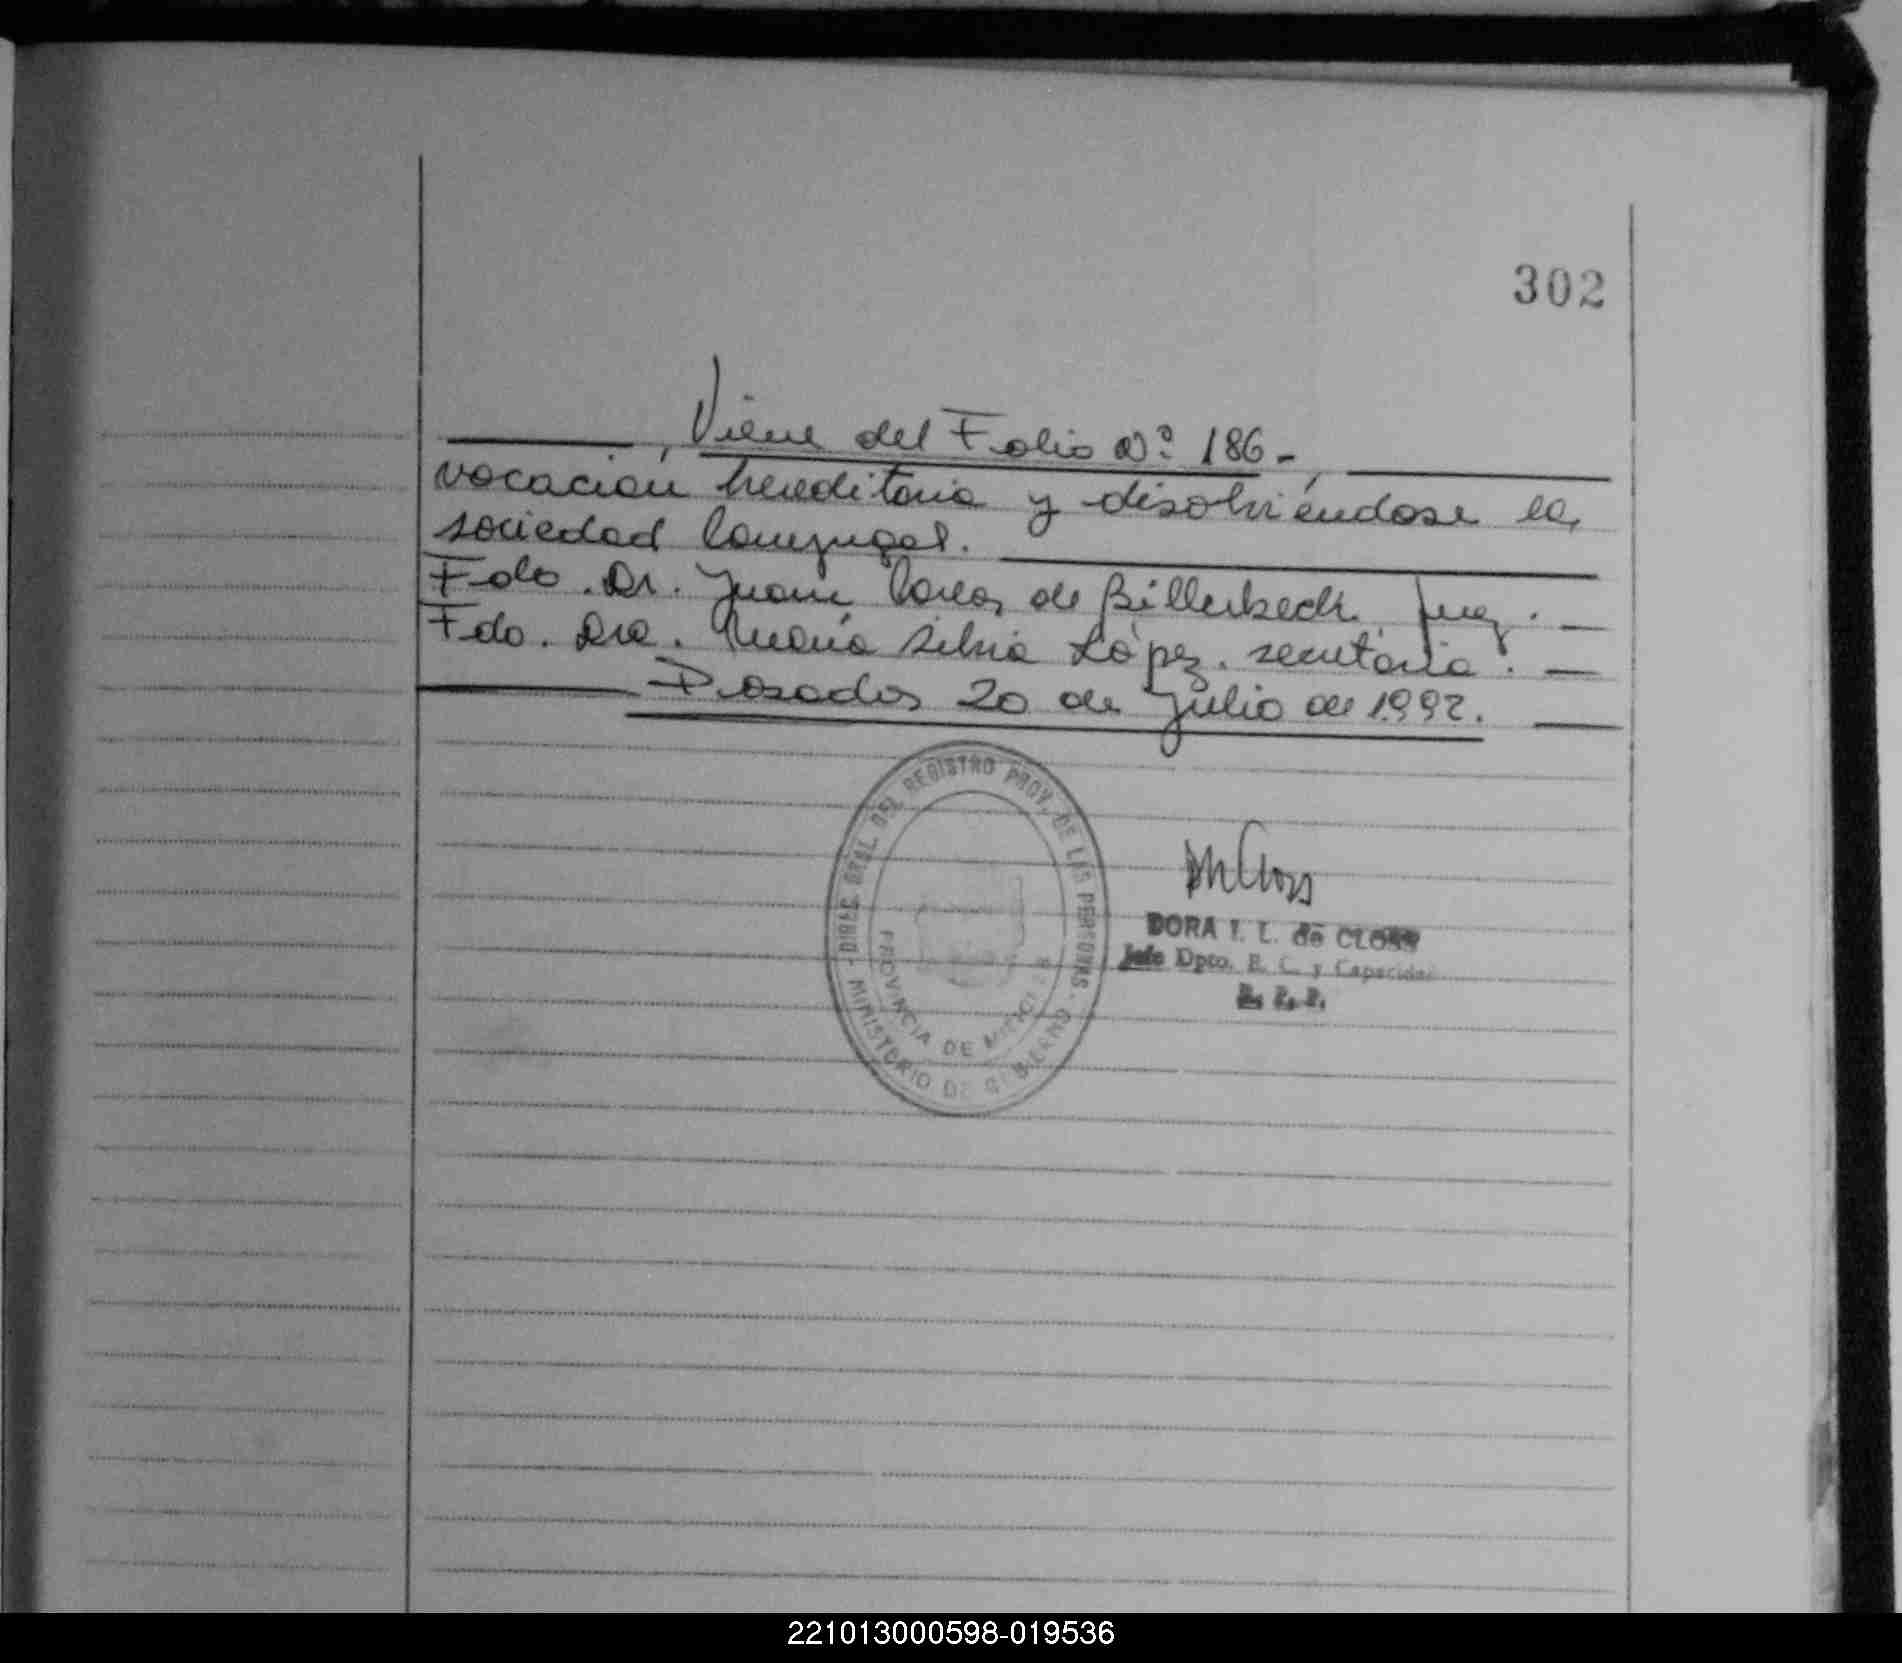 302
Viene del Folio Nº 186-
vocación hereditaria y disolviéndose la
sociedad Conyugal.
Fdo. Dr. Juan Carlos de Billerbeck. Juez.
Fdo. Dra. María Silvia López. secretaria.
Posadas 20 de Julio de 1.992.
DIREC. GRAL. DEL REGISTRO PROV. DE LAS PERSONAS - MINISTERIO DE GOBIERNO -
PROVINCIA DE MISIONES
DORA I. L. de CLOSS
Jefe Dpto. E. C. y Capacidad
221013000598-019536